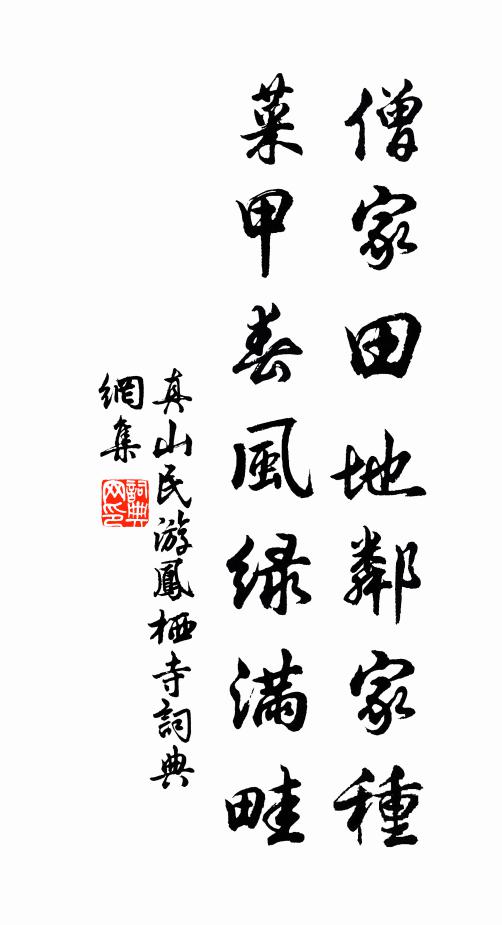 僧家田地鄰家種
菜甲春風緑滿畦
真山民游鳳栖寺詞典
網集
詞典
网印